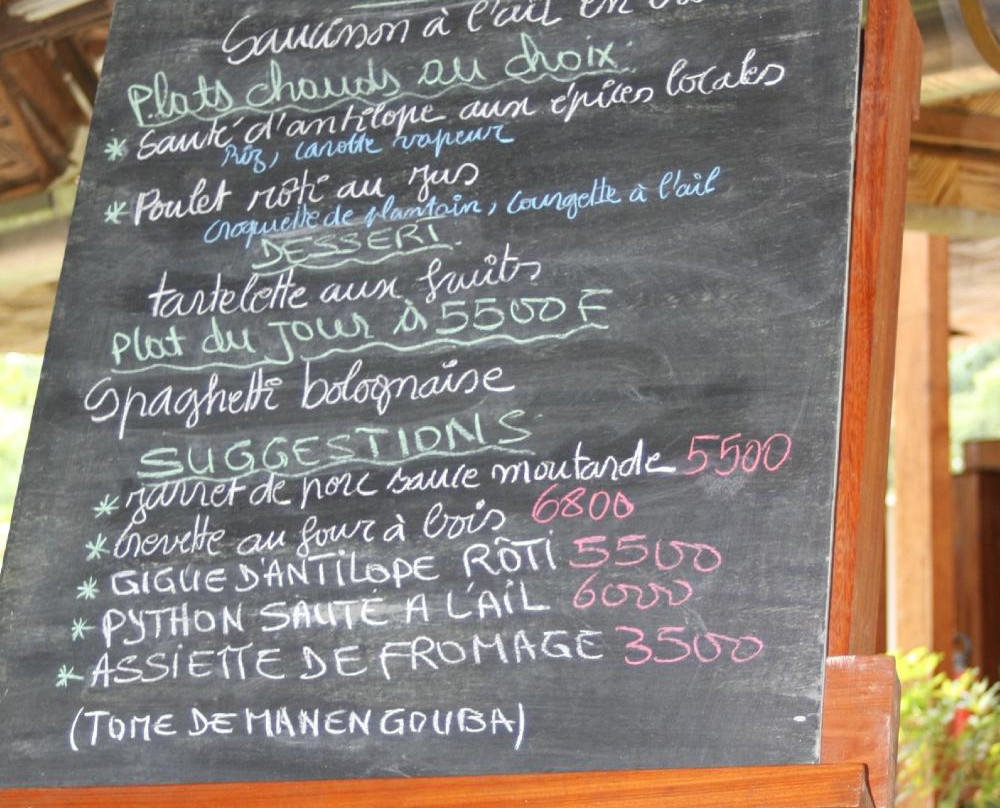 Saucisson à l'ail en
Plats chauds au choix:
* Sauté d'antilope aux épices locales
Riz, carotte vapeur
* Poulet rôti au jus
Croquette de plantain, courgette à l'ail
DESSERT.
tartelette aux fruits
Plat du JOUR à 5500 F
Spaghetti bolognaise
SUGGESTIONS
* jarret de porc sauce moutarde 5500
* crevette au four à bois 6800
* GIGUE D'ANTILOPE RÔTI 5500
* PYTHON SAUTÉ A L'AIL 6000
* ASSIETTE DE FROMAGE 3500
(TOME DE MANENGOUBA)